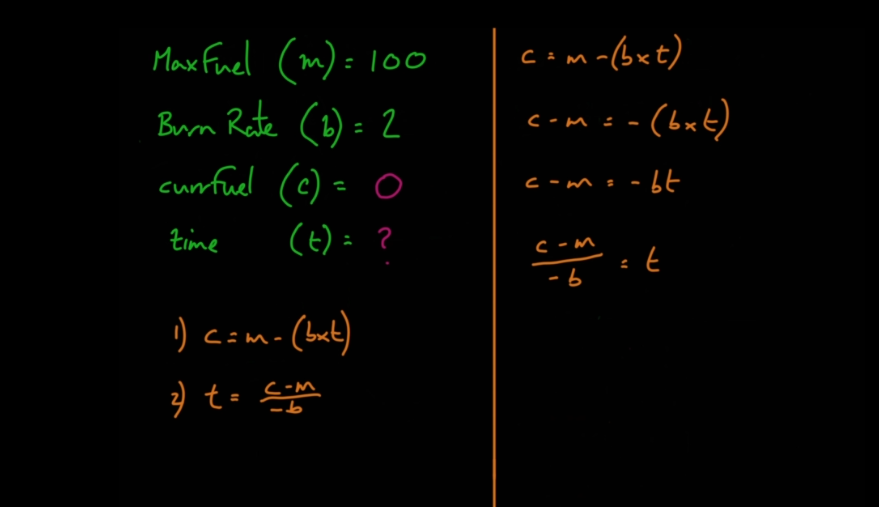 MaxFuel (m) = 100
Burn Rate (b) = 2
currfuel (c) = 0
time (t) = ?
1) c = m - (b×t)
2) t = c-m / -b
c = m - (b×t)
c - m = - (b×t)
c - m = - bt
c - m / - b = t